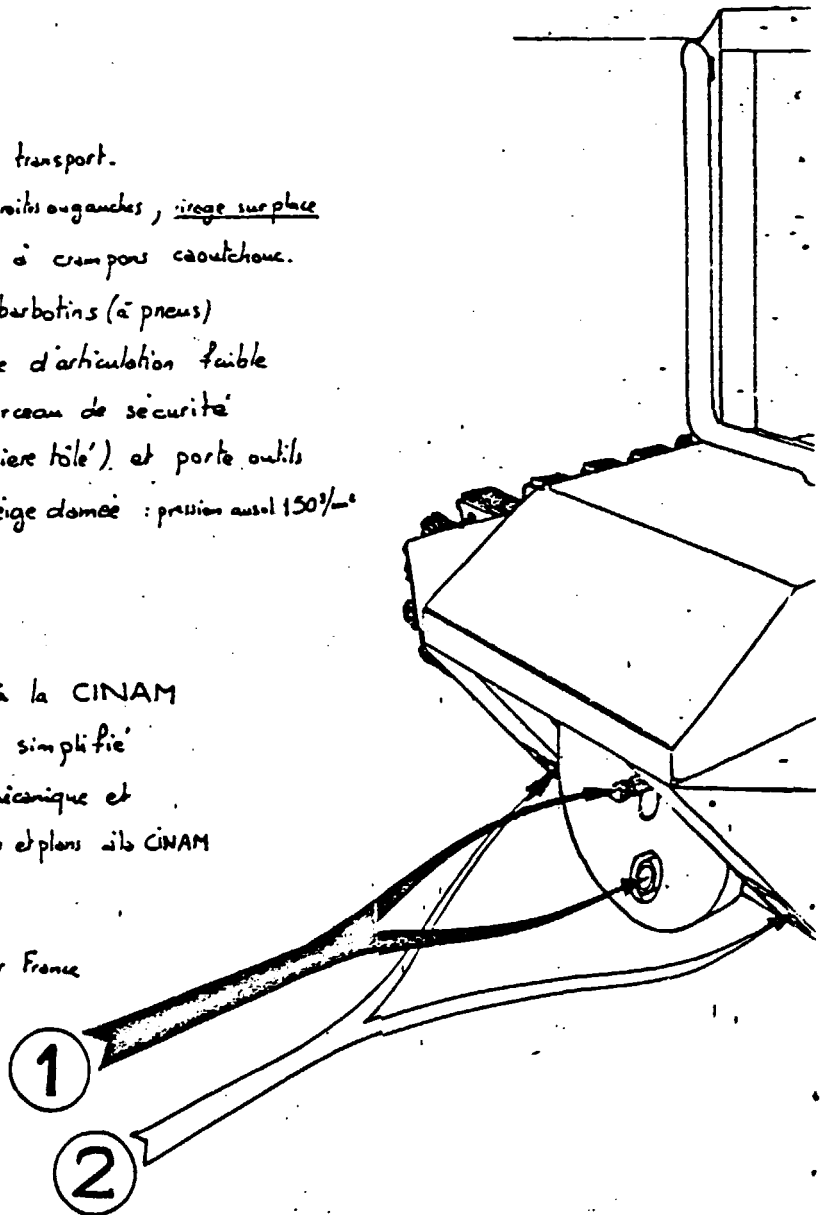 transport.
roites ou gauches, virage sur place
à crampons caoutchouc.
barbotins (à pneus)
e d'articulation faible
rceau de sécurité
iere tôlé) et porte outils
eige damée : pression au sol 150
à la CINAM
simplifié
écanique et
et plans à la CINAM
r France
1
2